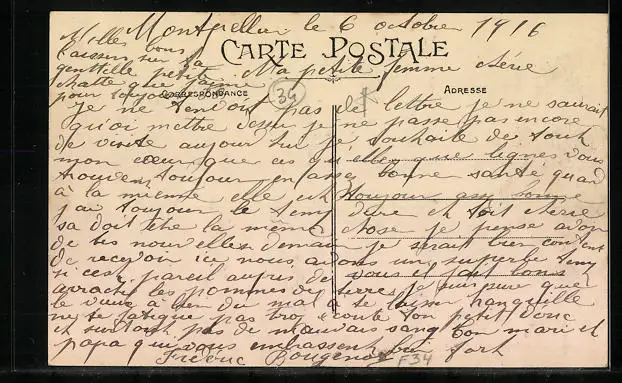 Montpellier le 6 octobre 1916
Milles bons
baisers sur ta
gentille petite
chatte que j'aime
pour toujours
CARTE POSTALE
Ma petite femme chérie
CORRESPONDANCE
39
ADRESSE
Je ne t'envoit pas de lettre je ne saurait
quoi mettre dessu je ne passe pas encore
de visite aujour je souhaite de tout
mon cœur que ces quelleque lignes vous
trouvent toujour en asser bonne santé quand
à la mienne elle est toujour assez bonne
j'ai toujour le temp dure et toit cherie
sa doit etre la même chose je pense avoir
de tes nouvelles demain je serait bien content
de recevoir ici nous avons un superbe temp
si ces pareil aupres de vous il fait bons
arracher les pommes de terre je suis sure que
le vieux à bien du mal à se laisser tranquille
ne se fatigue pas trop écoute ton petit
et surtout pas de mauvais sang ton mari et
papa qui vous embrassent fort
F34